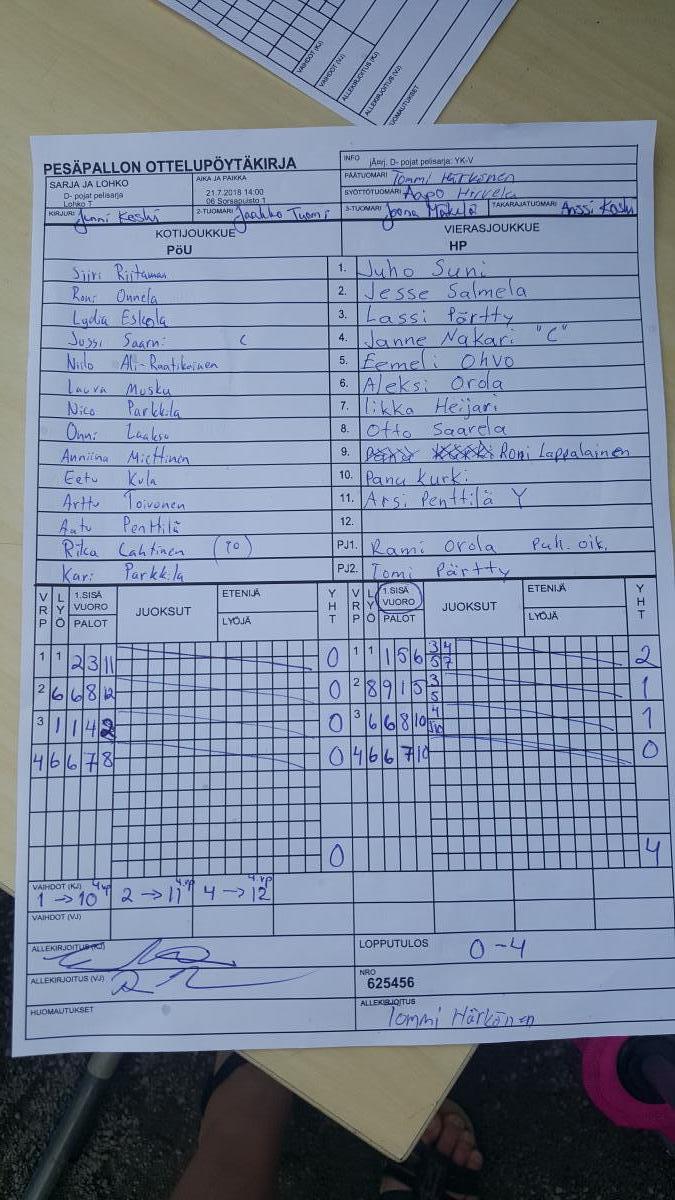 VAIHDOT (KJ)
VAIHDOT (VJ)
ALLEKIRJOITUS (KJ)
ALLEKIRJOITUS (VJ)
HUOMAUTUKSET
PESÄPALLON OTTELUPÖYTÄKIRJA
INFO jÄnrj. D- pojat pelisarja: YK-V
SARJA JA LOHKO
D- pojat pelisarja
Lohko T
AIKA JA PAIKKA
21.7.2018 14:00
06 Sorsapuisto 1
PÄÄTUOMARI Tommi Härkönen
SYÖTTÖTUOMARI Aapo Hirvelä
KIRJURI Jenni Koski 2-TUOMARI Jaakko Tuomi 3-TUOMARI Joona Mäkelä TAKARAJATUOMARI Anssi Koski
KOTIJOUKKUE VIERASJOUKKUE
PöU HP
Siiri Riitamaa 1. Juho Suni
Roni Onnela 2. Jesse Salmela
Lydia Eskola 3. Lassi Pörtty
Jussi Saarni C 4. Janne Nakari "C"
Niilo Ali-Raatikainen 5. Eemeli Ohvo
Laura Musku 6. Aleksi Orola
Nico Parkkila 7. Iikka Heijari
Onni Laakso 8. Otto Saarela
Anniina Miettinen 9. Roni Lappalainen
Eetu Kula 10. Panu Kurki
Arttu Toivonen 11. Arsi Penttilä Y
Aatu Penttilä 12.
Riika Lahtinen (TO) PJ1. Rami Orola Puh. oik.
Kari Parkkila PJ2. Tomi Pärtty
VRP LYÖ 1.SISÄ VUORO PALOT JUOKSUT ETENIJÄ LYÖJÄ YHT VRP LYÖ 1.SISÄ VUORO PALOT JUOKSUT ETENIJÄ LYÖJÄ YHT
1 1 2 3 11 0 1 1 1 5 6 3 4 5 7 2
2 6 6 8 12 0 2 8 9 1 5 3 5 1
3 1 1 4 2 0 3 6 6 8 10 4 1
4 6 6 7 8 0 4 6 6 7 10 0
0 4
VAIHDOT (KJ)
1 → 10 4.vp 2 → 11 4.vp 4 → 12 4.vp
VAIHDOT (VJ)
ALLEKIRJOITUS (KJ)
LOPPUTULOS 0-4
ALLEKIRJOITUS (VJ)
NRO
625456
HUOMAUTUKSET
ALLEKIRJOITUS
Tommi Härkönen